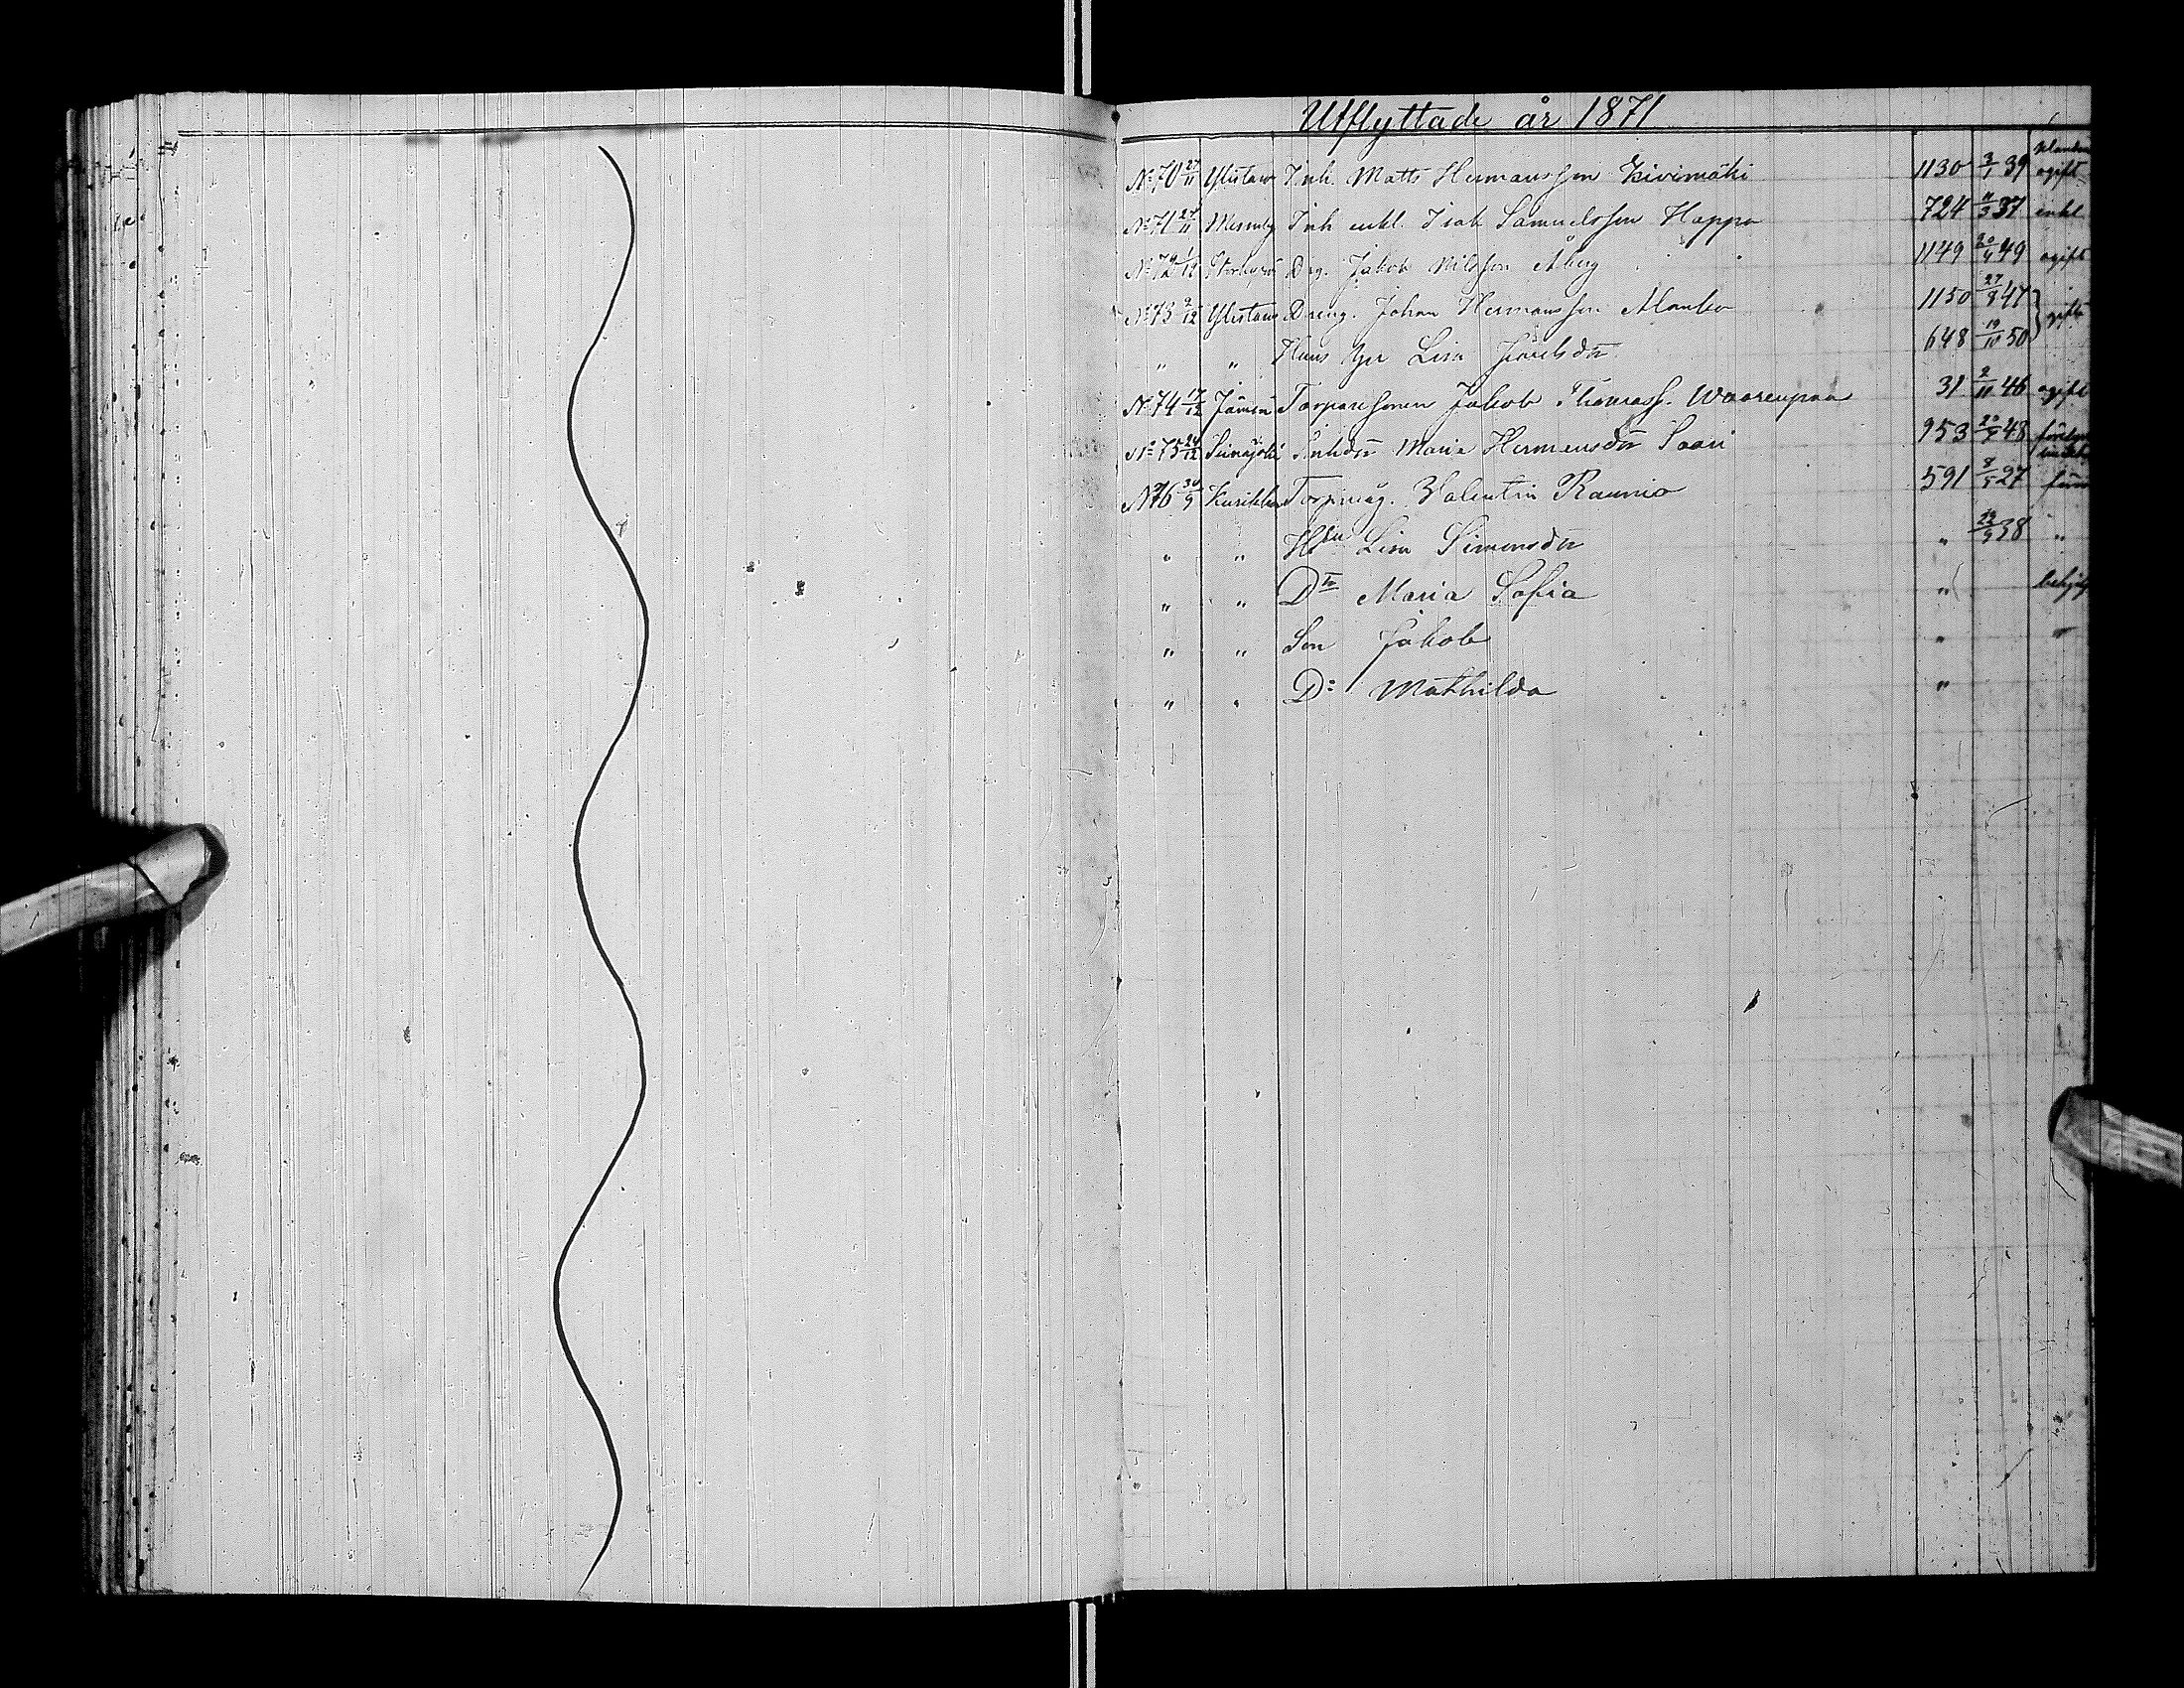 Utflyttade år 1871
No 70 27/11 Ylistaro Inh. Matts Hermansson Kivimäki 1130 3/1 39 ogift
No 71 27/11 Inh enkl. Isak Samuelsson Happo 724 37 enkl
No 72 1/12 Drg. Jakob Nilsson Åberg 1149 49 ogift
No 73 2/12 Ylistaro Dreng. Johan Hermansson Alanko 1150 27/8 47
" " Hans hu Lisa 648 19/10 50 gifta
No 74 17/12 Torparesonen Jakob Thomass. Waarenpää 31 2/11 46 ogift
No 75 24/12 Seinäjoki Inhdr Maria Hermansdr Saari 953 48
No 76 Kurikka Torpmåg. Valentin Raunio 591 27
" " Hstu Lisa Simonsdr " 38 "
" " Dr Maria Sofia "
" " Son Jakob " "
" " D: Mathilda "